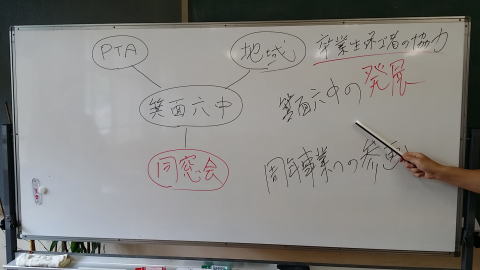 PTA
地域
箕面六中
同窓会
卒業生保護者の協力
箕面六中の発展
周年事業への参画